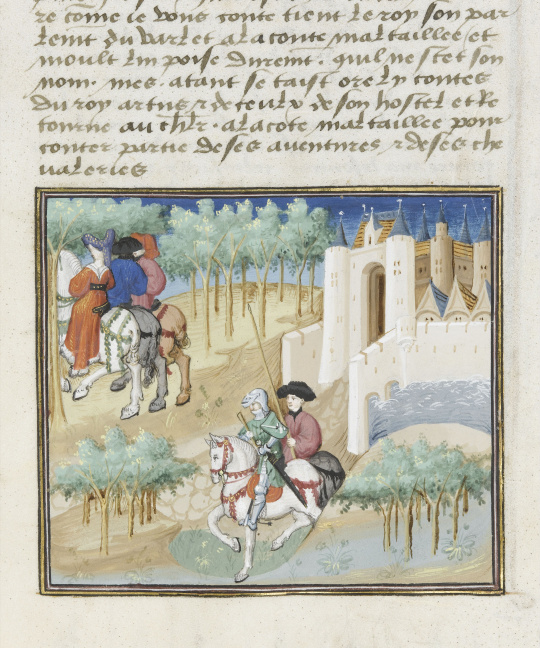 re co͂me ie vous conte tient le roy son par
lemt du varlet a la conte mal taillee et
moult lui poise durem̃t · quil ne scet son
nom · mes · atant se taist ore ly contes
du roy artus ⁊ de ceulx de son hostel et re
tourne au ch̅lr · a la cote mal taillee pour
conter partie de ses auentures ⁊ de ses che
ualeries